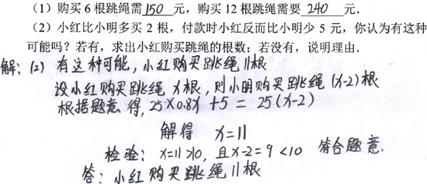 (1) 购买 6 根跳绳需 150 元,购买 12 根跳绳需要 240 元.
(2) 小红比小明多买 2 根,付款时小红反而比小明少 5 元,你认为有这种
可能吗?若有,求出小红购买跳绳的根数;若没有,说明理由.
解:(2) 有这种可能,小红购买跳绳11根
设小红购买跳绳x根,则小明购买跳绳(x-2)根
根据题意得,25×0.8x+5=25(x-2)
解得 x=11
检验:x=11>10,且x-2=9<10 符合题意.
答:小红购买跳绳11根